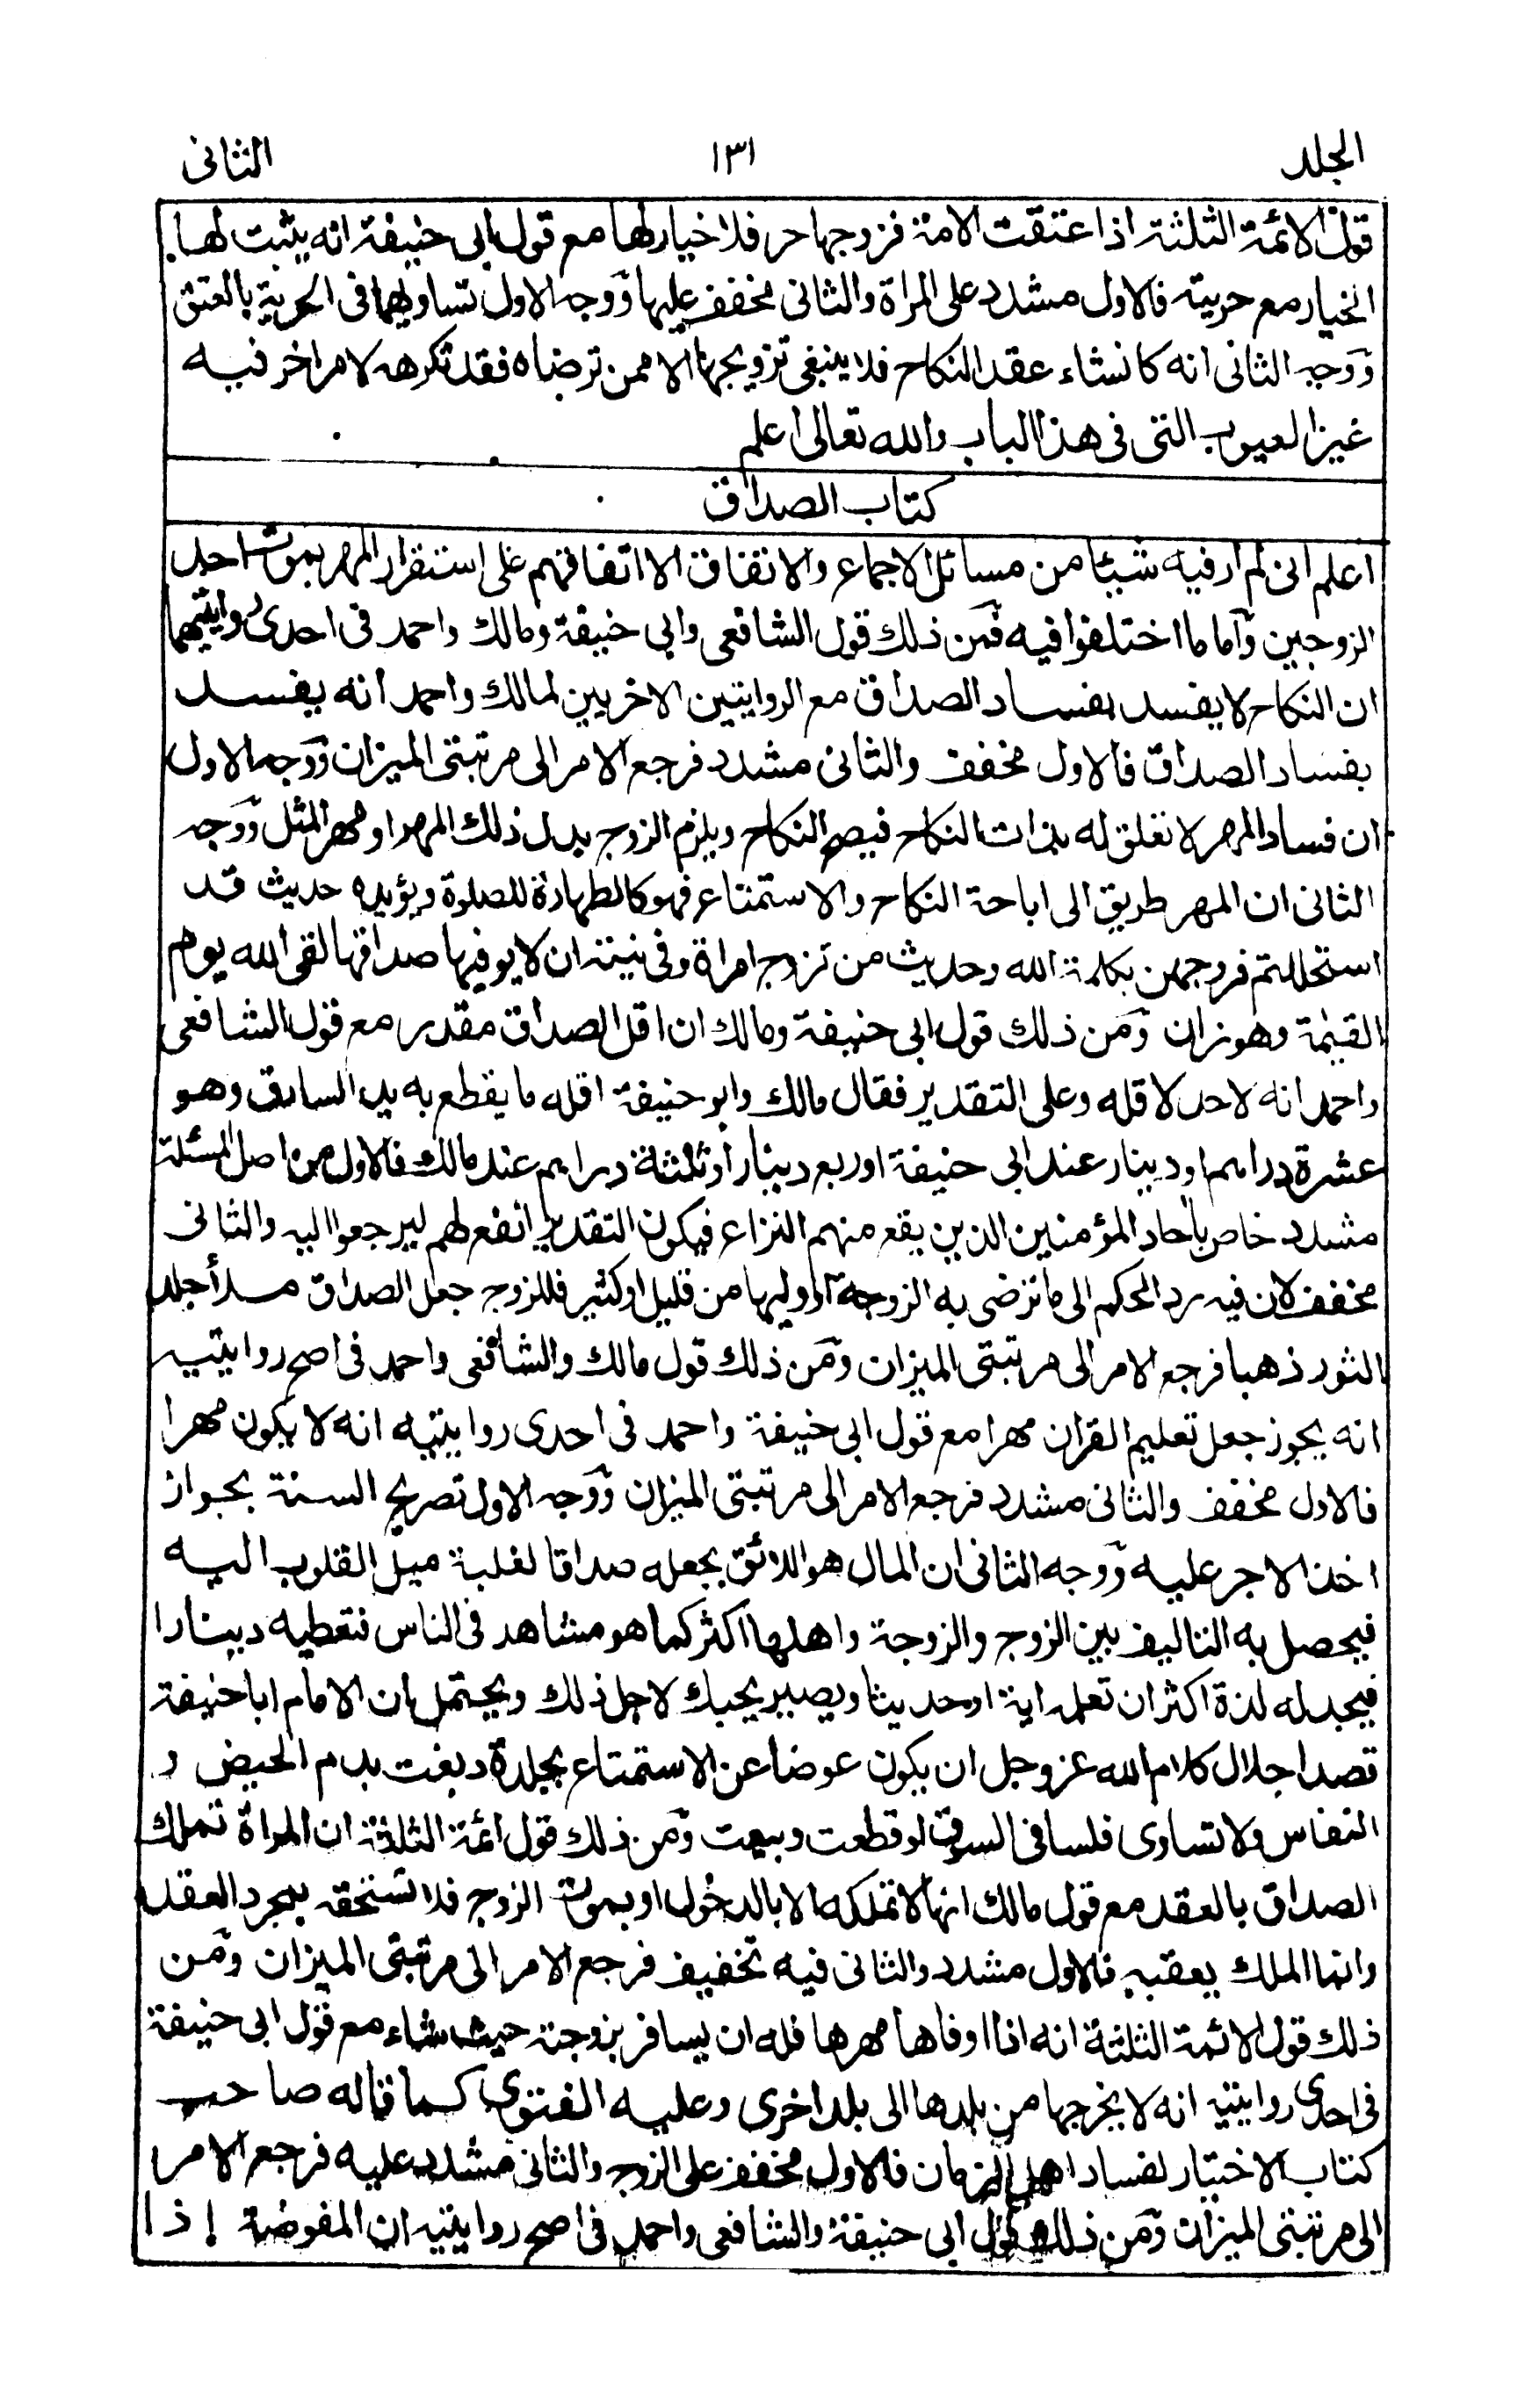 الجلد ١٣١ الثانى
قول الائمة الثلثة اذا عتقت الامة فزوجها حر فلا خيار لها مع قول ابى حنيفة انه يثبت لها
الخيار مع حريته فالاول مشدد على المراة والثانى مخفف عليها ووجه الاول تساويهما فى الحرية بالعتق
ووجه الثانى انه كانشاء عقد النكاح فلا ينبغى تزويجها الا ممن ترضاه فقد تكرهه لامر اخر فيه
غير العيوب التى فى هذا الباب والله تعالى اعلم
كتاب الصداق
اعلم انى لم ار فيه شيئا من مسائل الاجماع والاتفاق الا اتفاقهم على استقرار المهر بموت احد
الزوجين واما ما اختلفوا فيه فمن ذلك قول الشافعى وابى حنيفة ومالك واحمد فى احدى روايتيهما
ان النكاح لا يفسد بفساد الصداق مع الروايتين الاخريين لمالك واحمد انه يفسد
بفساد الصداق فالاول مخفف والثانى مشدد فرجع الامر الى مرتبتى الميزان ووجه الاول
ان فساد المهر لا تعلق له بذات النكاح فيصح النكاح ويلزم الزوج بدل ذلك المهر او مهر المثل ووجه
الثانى ان المهر طريق الى اباحة النكاح والاستمتاع فهو كالطهارة للصلوة ويؤيده حديث قد
استحللتم فروجهن بكلمة الله وحديث من تزوج امراة وفى نيته ان لا يوفيها صداقها لقى الله يوم
القيمة وهو زان ومن ذلك قول ابى حنيفة ومالك ان اقل الصداق مقدر مع قول الشافعى
واحمد انه لاحد لاقله وعلى التقدير فقال مالك وابو حنيفة اقله ما يقطع به يد السارق وهو
عشرة دراهم او دينار عند ابى حنيفة او ربع دينار او ثلثة دراهم عند مالك فالاول من اصل المسئلة
مشدد خاص باحاد المؤمنين الذين يقع منهم النزاع فيكون التقدير انفع لهم ليرجعوا اليه والثانى
مخفف لان فيه رد الحكم الى ما ترضى به الزوجة او وليها من قليل او كثير فللزوج جعل الصداق ملأ جلد
الثور ذهبا فرجع الامر الى مرتبتى الميزان ومن ذلك قول مالك والشافعى واحمد فى اصح روايتيه
انه يجوز جعل تعليم القران مهرا مع قول ابى حنيفة واحمد فى احدى روايتيه انه لا يكون مهرا
فالاول مخفف والثانى مشدد فرجع الامر الى مرتبتى الميزان ووجه الاول تصريح السنة بجواز
اخذ الاجر عليه ووجه الثانى ان المال هو اللائق بجعله صداقا لغلبة ميل القلوب اليه
فيحصل به التاليف بين الزوج والزوجة واهلها اكثر كما هو مشاهد فى الناس فتعطيه دينارا
فيجد له لذة اكثر ان تعلمه اية او حديثا ويصير يحبك لاجل ذلك ويحتمل ان الامام اباحنيفة
قصد اجلال كلام الله عز وجل ان يكون عوضا عن الاستمتاع بجلدة دبغت بدم الحيض و
النفاس ولا تساوى فلسا فى السوق لو قطعت وبيعت ومن ذلك قول ائمة الثلثة ان المراة تملك
الصداق بالعقد مع قول مالك انها لا تملكه الا بالدخول او بموت الزوج فلا تستحقه بمجرد العقد
وانما الملك يعقبه فالاول مشدد والثانى فيه تخفيف فرجع الامر الى مرتبتى الميزان ومن
ذلك قول الائمة الثلثة انه اذا اوفاها مهرها فله ان يسافر بزوجته حيث شاء مع قول ابى حنيفة
فى احدى روايتيه انه لا يخرجها من بلدها الى بلد اخرى وعليه الفتوى كما قاله صاحب
كتاب الاختيار لفساد اهل الزمان فالاول مخفف على الزوج والثانى مشدد عليه فرجع الامر
الى مرتبتى الميزان ومن ذلك قول ابى حنيفة والشافعى واحمد فى اصح روايتيه ان المفوضة اذا